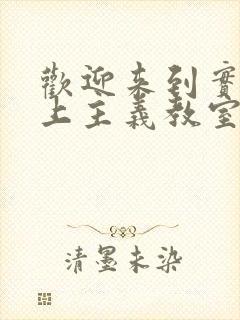 歡迎來到實
上主義教室
清墨未染